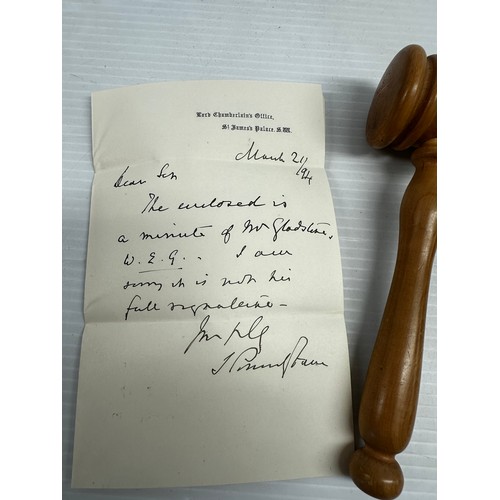 Lord Chamberlain's Office,
St. James's Palace, S.W.
March 21/94
Dear Sir
The enclosed is
a minute of Mr Gladstone,
W.E.G. . I am
sorry it is not his
full signature -